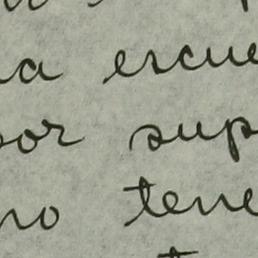 a escue
por sup
no tene